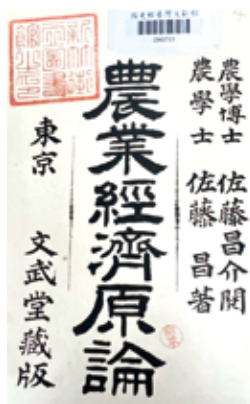 農學博士 佐藤昌介閱
農學士 佐藤昌著
農業經濟原論
東京 文武堂藏版